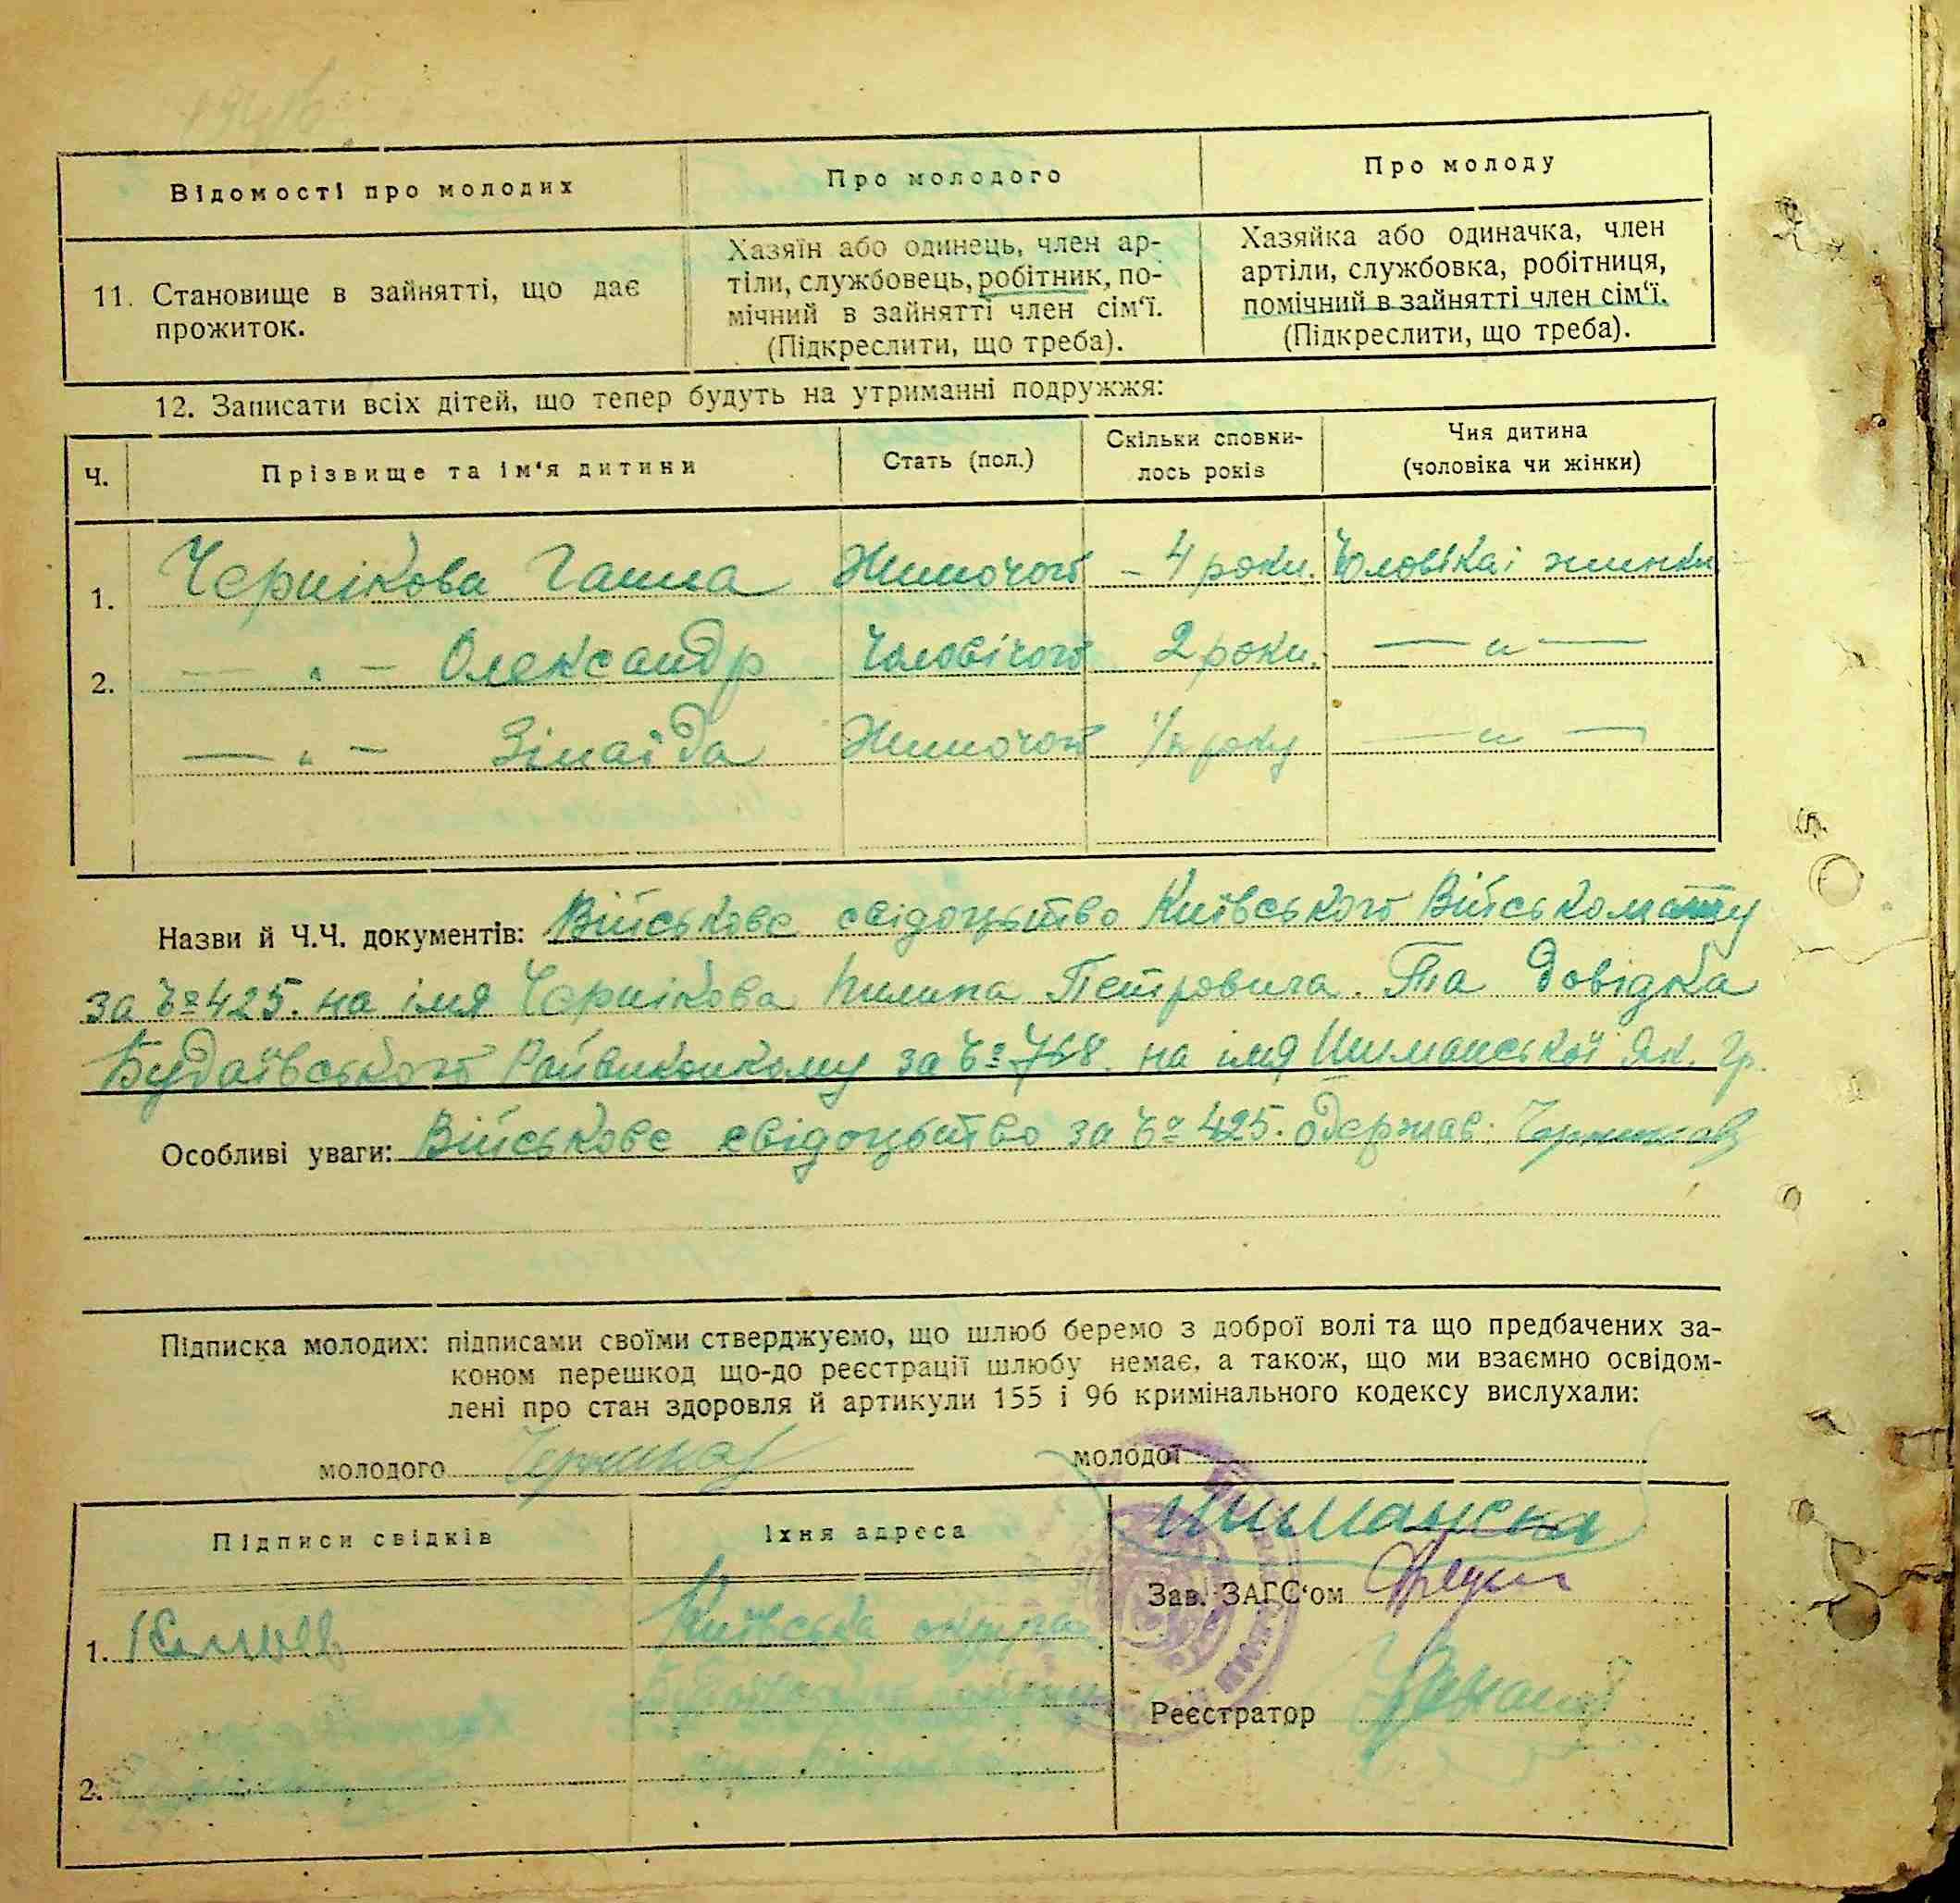 Відомості про молодих Про молодого Про молоду
11. Становище в зайнятті, що дає прожиток.
Хазяїн або одинець, член ар-
тіли, службовець, робітник, по-
мічний в зайнятті член сім'ї.
(Підкреслити, що треба).
Хазяйка або одиначка, член
артіли, службовка, робітниця,
помічний в зайнятті член сім'ї.
(Підкреслити, що треба).
12. Записати всіх дітей, що тепер будуть на утриманні подружжя:
Ч. Прізвище та ім'я дитини Стать (пол.) Скільки сповни-
лось років Чия дитина
(чоловіка чи жінки)
1. Чернікова Ганна Жиночого – 4 роки. Чоловіка і жинки
2. — „ — Олександр Чоловічого 2 роки. — „ —
— „ — Зінаїда Жиночого 1/2 року — „ —
Назви й Ч.Ч. документів: Військове свідоцтво Київського Військомату
за Ч° 425. на імя Чернікова Пилипа Петровича. Та довідка
Будаївського Райвиконкому за Ч° 768. на імя Шиманської Як. Гр.
Особливі уваги: Військове свідоцтво за Ч° 425. одержав.
Підписка молодих: підписами своїми стверджуємо, що шлюб беремо з доброї волі та що предбачених за-
коном перешкод що-до реєстрації шлюбу немає, а також, що ми взаємно освідом-
лені про стан здоровля й артикули 155 і 96 кримінального кодексу вислухали:
молодого молодої
Шиманска
Підписи свідків Їхня адреса
Зав. ЗАГС'ом
1. Київська округа
Реєстратор
2.